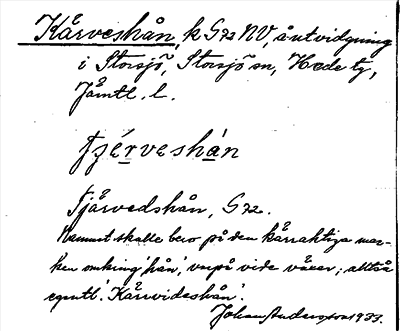 Kårveshån, k G72 NV, åutvidgning
i Storsjö, Storsjö sn, Hede tg,
Jämtl. l.
fjérveshán
Tjårvedshån, G72.
Namnet skulle bero på den kärraktiga mar-
ken omkring 'hån', varpå vide växer; alltså
egentl. 'Kärrvideshån'.
Johan Andersson 1933.